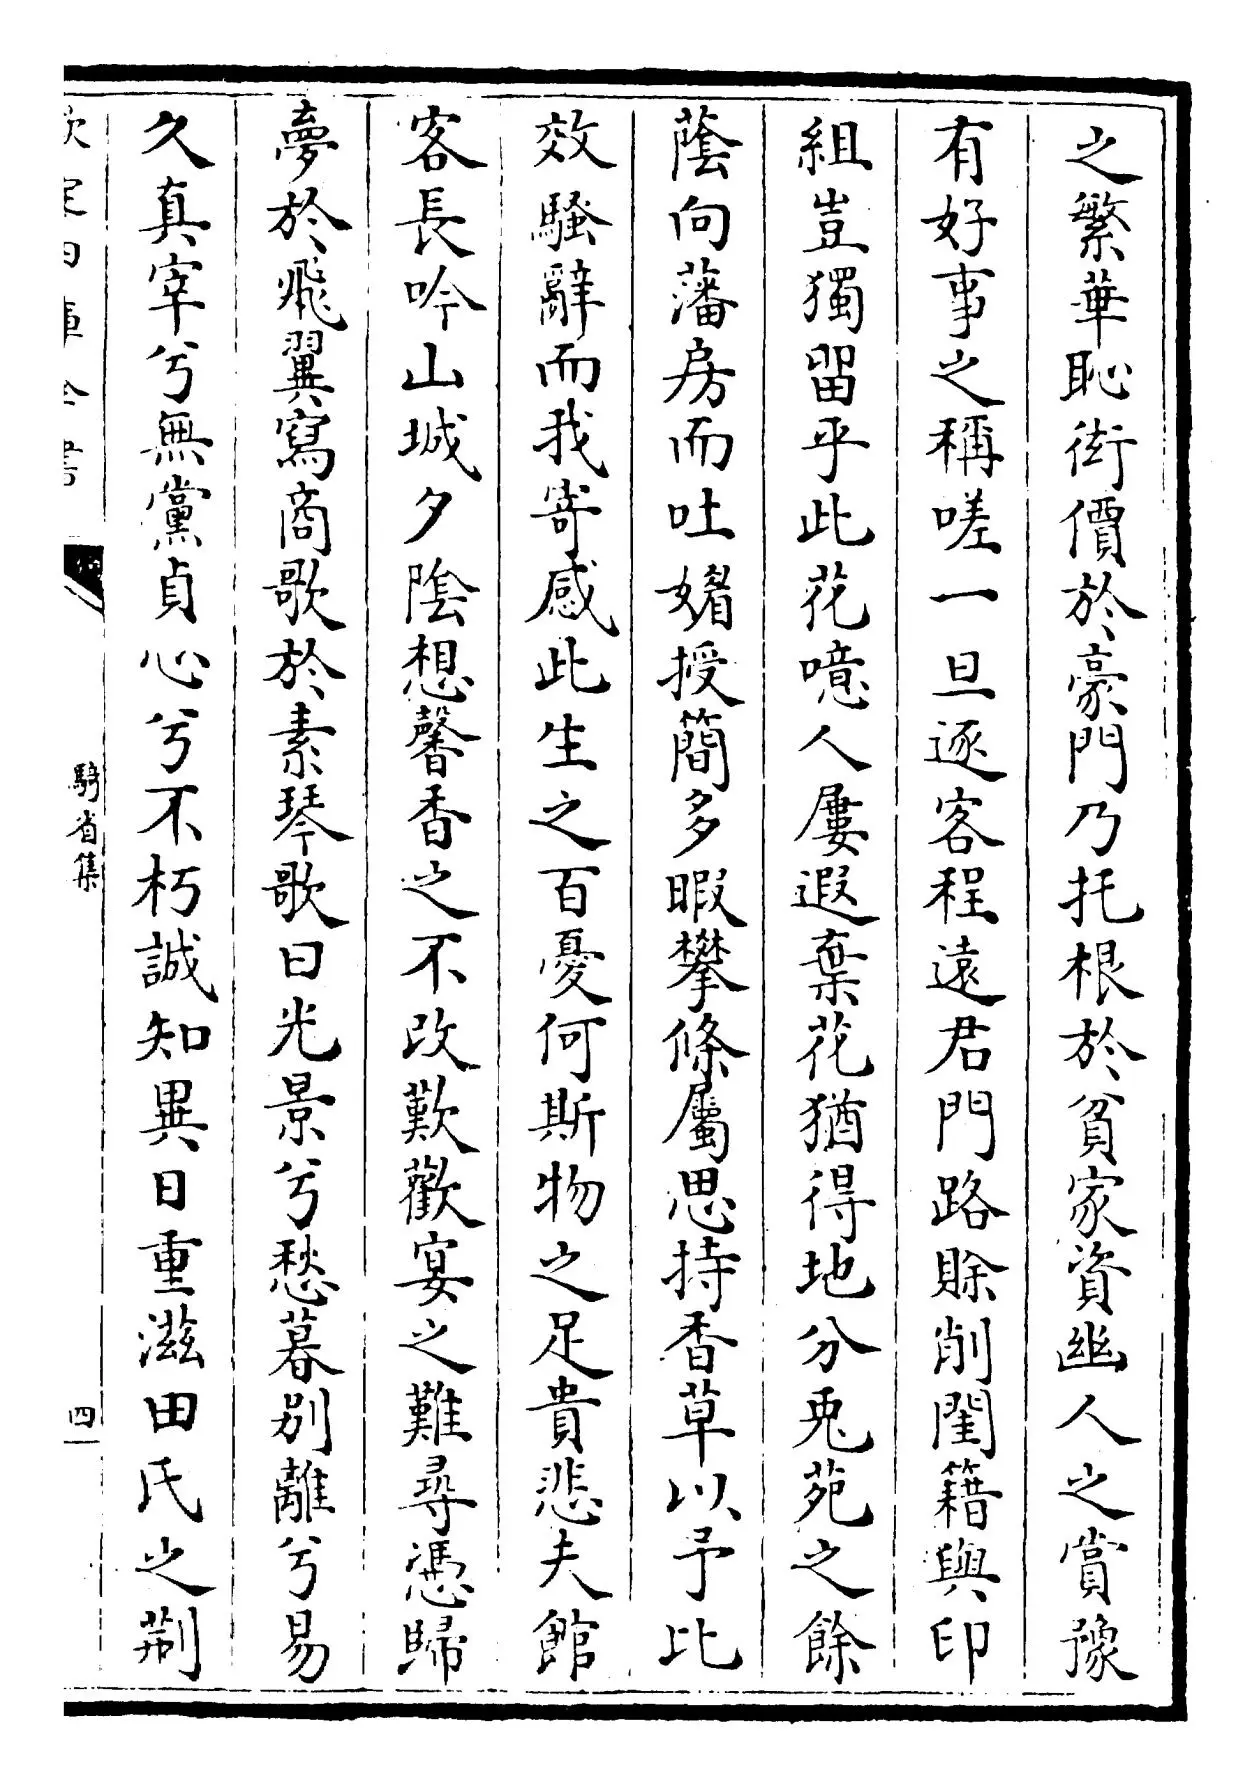 之繁華恥衒價於豪門乃托根於貧家資幽人之賞豫
有好事之稱嗟一旦逐客程遠君門路賒削閨籍與印
組豈獨留乎此花噫人屢遐棄花猶得地分兎苑之餘
蔭向藩房而吐媚授簡多暇攀條屬思持香草以予比
效騷辭而我寄感此生之百憂何斯物之足貴悲夫館
客長吟山城夕陰想馨香之不改歎歡宴之難尋憑歸
夢於飛翼寫商歌於素琴歌曰光景兮愁暮别離兮易
久真宰兮無黨貞心兮不朽誠知異日重滋田氏之荆
欽定四庫全書
騎省集
四